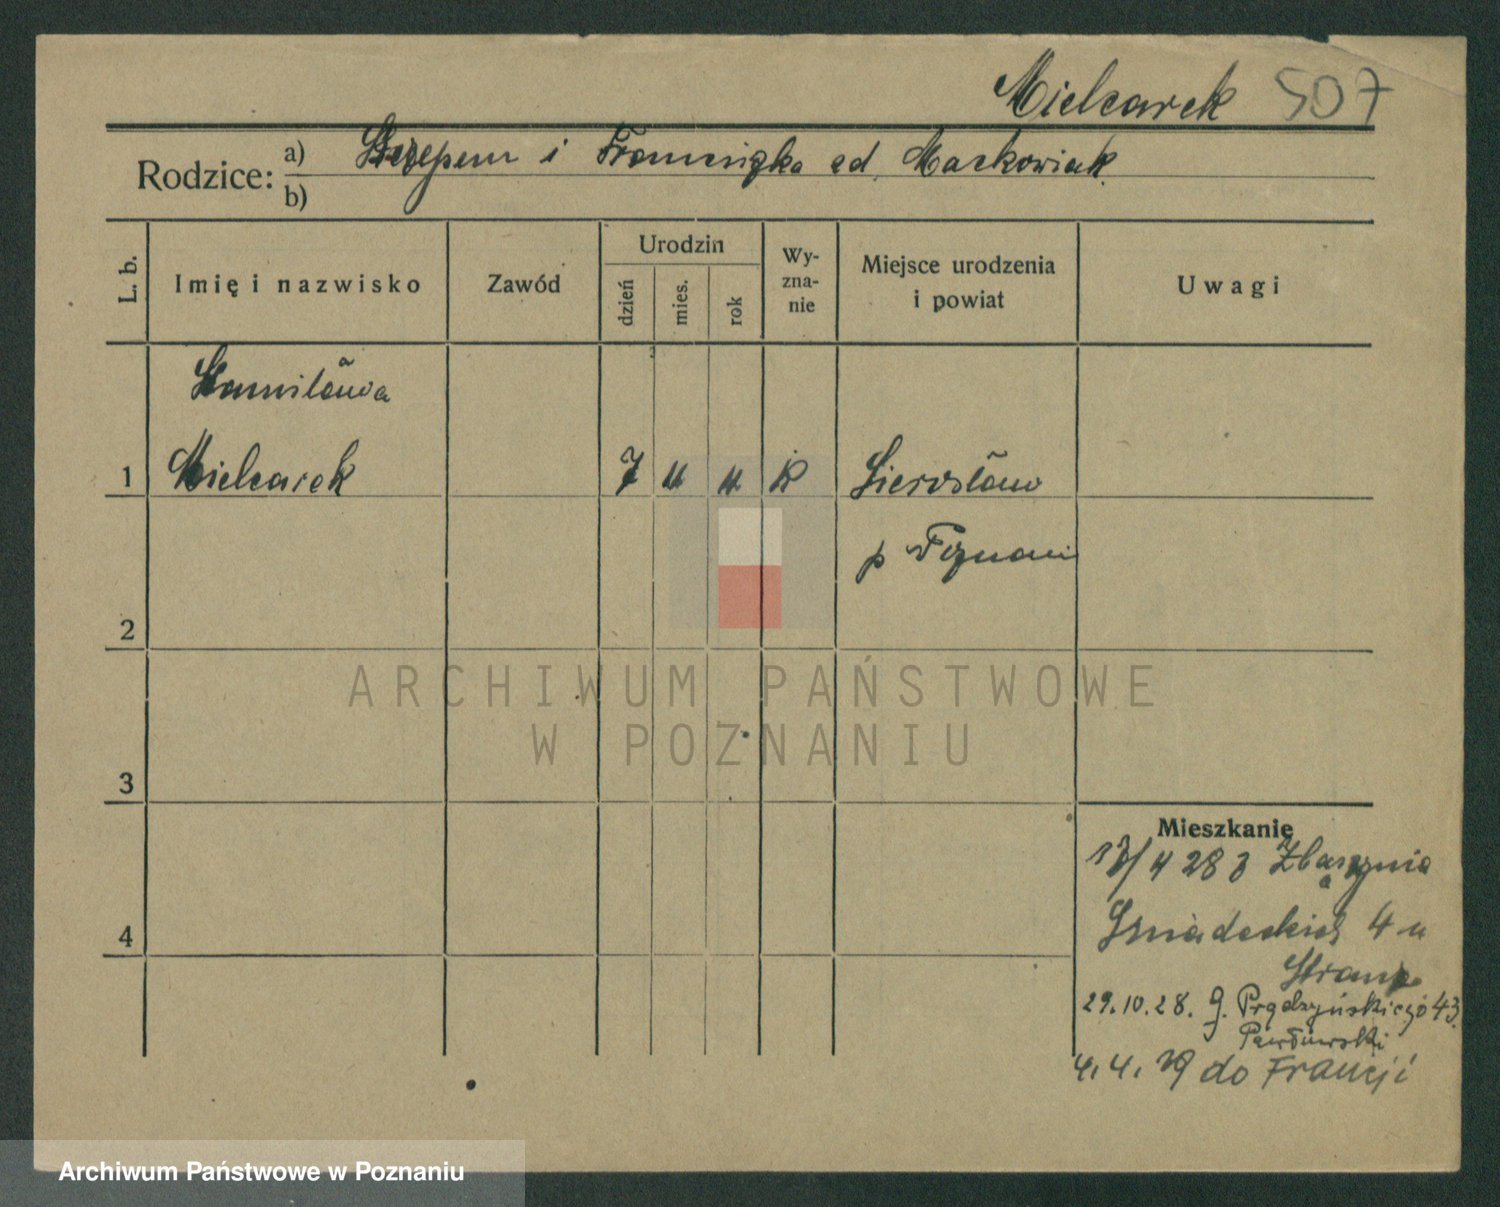 Mielcarek 507
Rodzice: a) Szczepan i Franciszka zd. Maćkowiak
b)
L. b. Imię i nazwisko Zawód Urodzin dzień mies. rok Wy-zna-nie Miejsce urodzenia i powiat Uwagi
Stanisława
1 Mielcarek 7 R Sierosław
p Poznani
2
ARCHIWUM PAŃSTWOWE
W POZNANIU
3
Mieszkanie
/4 28 z Zbąszynia
4 Śniadeckich 4 u
29.10.28. G. Prądzyńskiego 43.
Pawłowski
4.4.29 do Francji
Archiwum Państwowe w Poznaniu